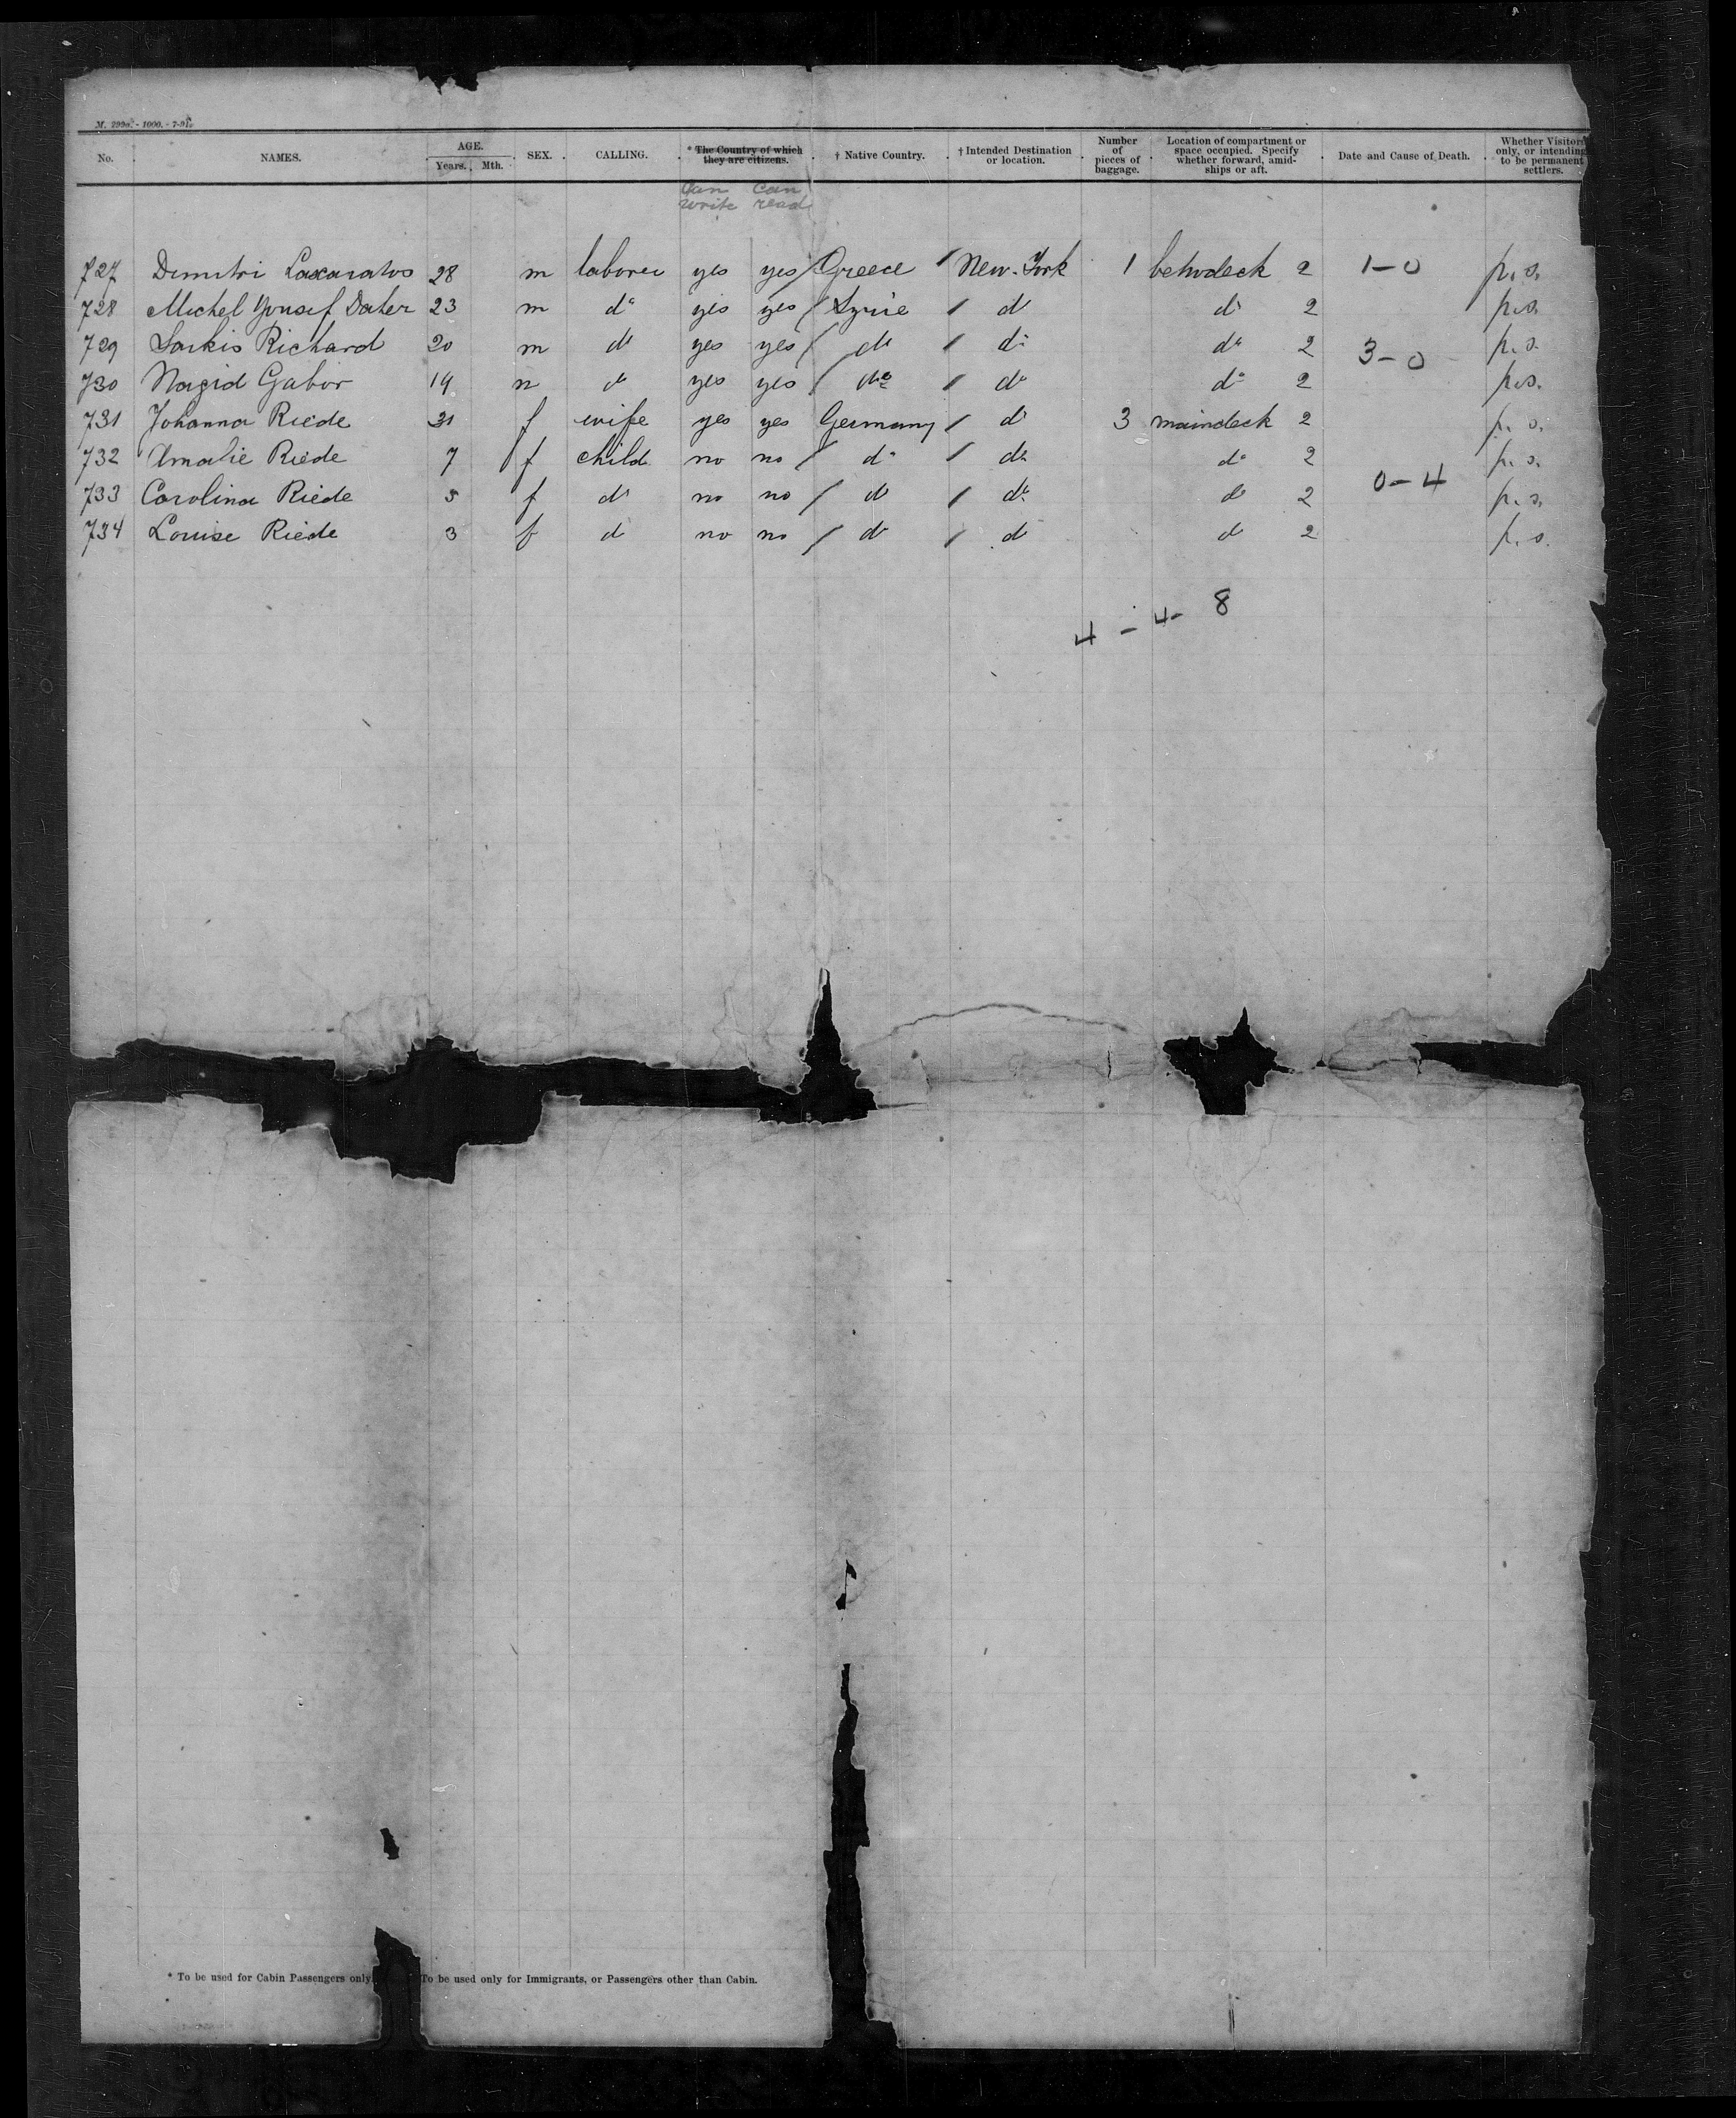 M. 299a. - 1000. - 7-91.
No. NAMES. AGE. Years. Mth. SEX. CALLING. * The Country of which they are citizens. † Native Country. † Intended Destination or location. Number of pieces of baggage. Location of compartment or space occupied. Specify whether forward, amidships or aft. Date and Cause of Death. Whether Visitors only, or intending to be permanent settlers.
Can write Can read
727 Dimitri Laxaratos 28 m laborer yes yes / Greece / New-York 1 betwdeck 2 1-0 p. s.
728 Michel Yousif Daher 23 m do yes yes / Syrie / do do 2 p.s.
729 Sarkis Richard 20 m do yes yes / do / do do 2 3-0 p. s.
730 Nagid Gabor 19 m do yes yes / do / do do 2 p.s.
731 Johanna Riede 31 f wife yes yes Germany / do 3 maindeck 2 p. s.
732 Amalie Riede 7 f child no no / do / do do 2 p. s.
733 Carolina Riede 5 f do no no / do / do do 2 0-4 p. s.
734 Louise Riede 3 f do no no / do / do do 2 p. s.
4 - 4 - 8
* To be used for Cabin Passengers only. To be used only for Immigrants, or Passengers other than Cabin.